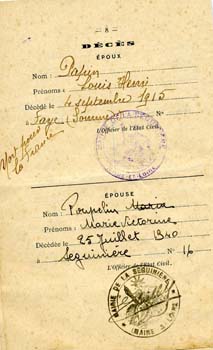 — 8 —
DÉCÈS
ÉPOUX
Nom : Papin
Prénoms : Louis Henri
Décédé le 4 septembre 1915
à Faye (Somme)
L'Officier de l'État Civil.
Mort pour
la France
ÉPOUSE
Nom : Poupelin Maria
Prénoms : Marie Victorine
Décédée le 25 Juillet 1940
Séguinière No 16
L'Officier de l'État Civil.
MAIRIE DE LA SÉGUINIÈRE
(MAINE & LOIRE)